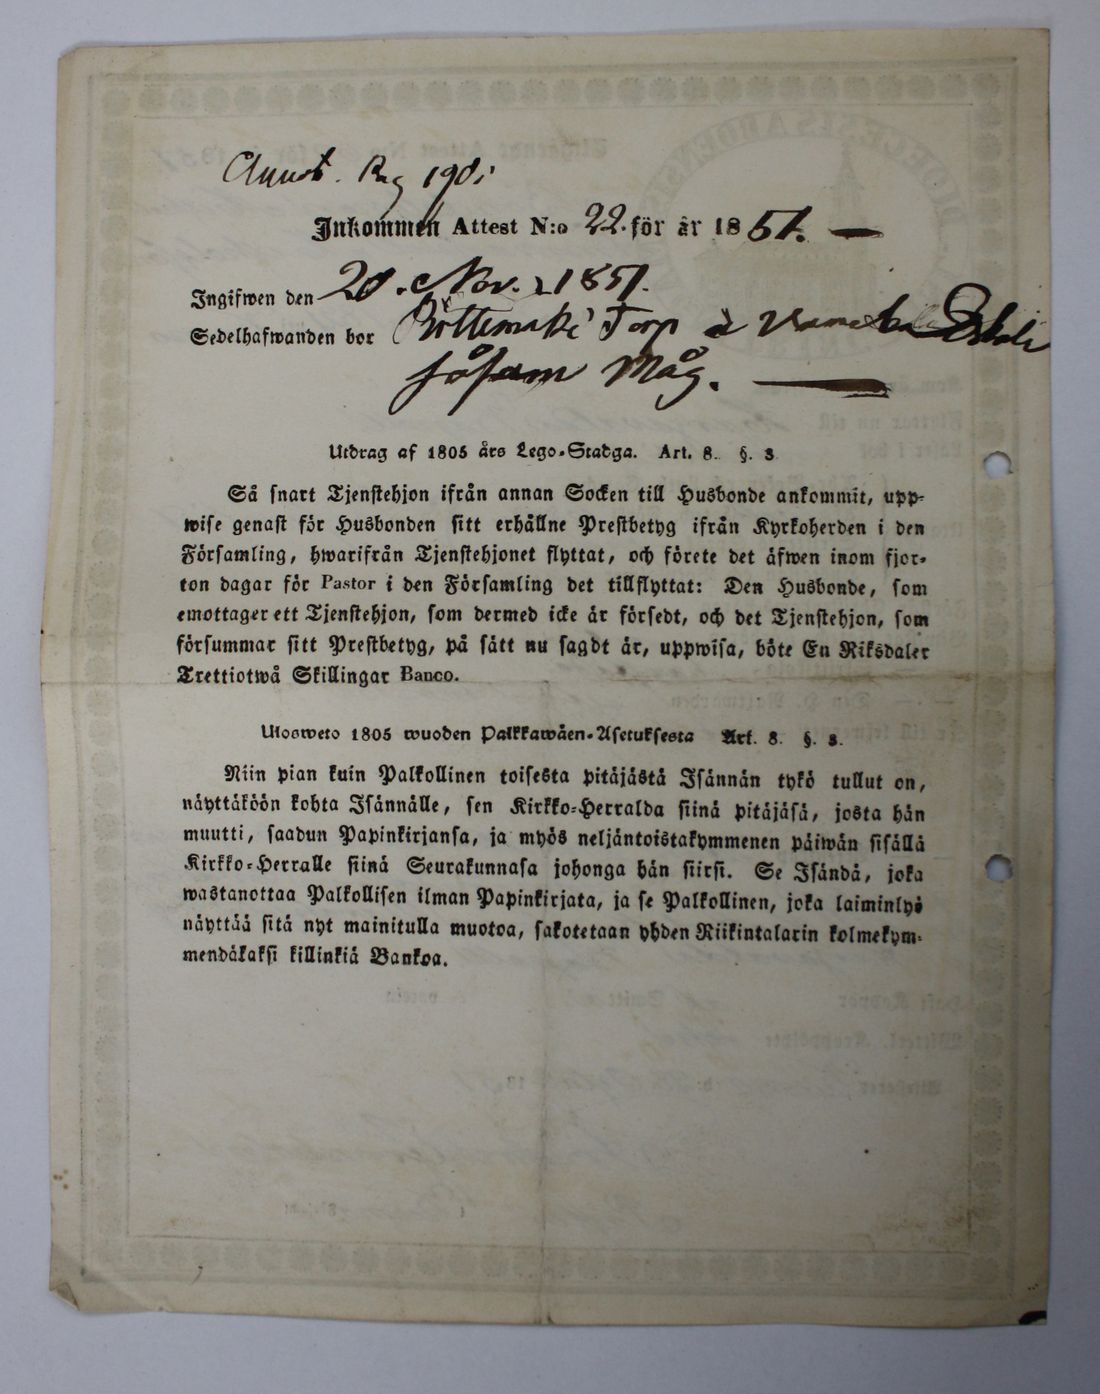 Inkommen Attest N:o 22. för år 1851. —
Ingifwen den 20. Nov. 1851.
Sedelhafwanden bor Torp
såsom Måg. —
Utdrag af 1805 års Lego-Stadga. Art. 8. §. 3
Så snart Tjenstehjon ifrån annan Socken till Husbonde ankommit, upp-
wise genast för Husbonden sitt erhållne Prestbetyg ifrån Kyrkoherden i den
Församling, hwarifrån Tjenstehjonet flyttat, och förete det äfwen inom fjor-
ton dagar för Pastor i den Församling det tillflyttat: Den Husbonde, som
emottager ett Tjenstehjon, som dermed icke är försedt, och det Tjenstehjon, som
försummar sitt Prestbetyg, på sätt nu sagdt är, uppwisa, böte En Riksdaler
Trettiotwå Skillingar Banco.
Ulosweto 1805 wuoden Palkkawäen-Asetuksesta Art. 8. §. 3.
Niin pian kuin Palkollinen toisesta pitäjästä Isännän tykö tullut on,
näyttäköön kohta Isännälle, sen Kirkko-Herralda siinä pitäjäsä, josta hän
muutti, saadun Papinkirjansa, ja myös neljäntoistakymmenen päiwän sisällä
Kirkko-Herralle siinä Seurakunnasa johonga hän siirsi. Se Isändä, joka
wastanottaa Palkollisen ilman Papinkirjata, ja se Palkollinen, joka laiminlyö
näyttää sitä nyt mainitulla muotoa, sakotetaan yhden Riikintalarin kolmekym-
mendäkaksi killinkiä Bankoa.